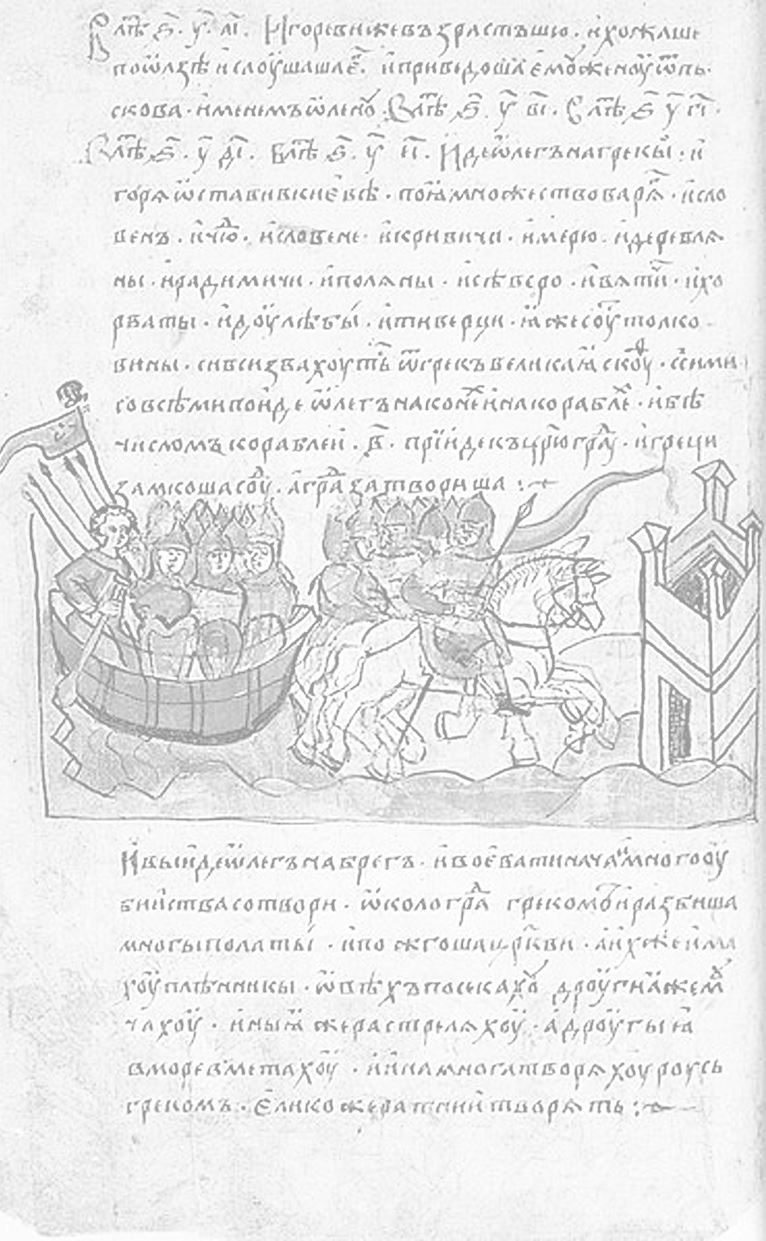 В лѣт҃ ѕ҃. у҃. аі҃. Игореви же възрастъшю. и хожаше
по ѡлзѣ и слоушашⷶ е҆г. и приведоша е҆моу женоу ѿ пь
скова. именемъ ѡлену. В лѣт҃ ѕ҃. у҃ ві҃. В лѣт҃ ѕ҃ у҃ гі҃.
В лѣт҃ ѕ҃. у҃ ді҃. В лѣт҃ ѕ҃. у҃ еі҃. Иде ѡлегъ на грекы. и
горя ѡставив киевѣ. поꙗ множество варѧ. и сло
венъ. и чю. и словене и кривичи. и мерю. и деревлѧ
ны. и радимичи. и полѧны. и сѣверо. и вѧтичи. и хо
рваты. и доулѣбы. и тиверци. ꙗже соуть толко
вины. си вси звахоуть ѿ грекъ великаꙗ скоуф. с сими
со всѣми поиде ѡлегъ на конех и на кораблех. и бѣ
числомъ кораблеи. в҃. прїиде къ цр҃ю град. и греци
замкоша соуд. а град затвориша
И выиде ѡлегъ на брегъ. и воевати нача и много оу
бииства сотвори. ѡколо град грекомъ и разбиша
многы полаты. и пожгоша церкви. а ихже има
хоу плѣнникы. ѡвѣхъ посекаху дроугиꙗ же м
чахоу. иныꙗ же растрелѧхоу. а дроугыꙗ
в море вметахоу. и ина многа творѧхоу роусь
грекомъ. Елико же ратнии творѧть